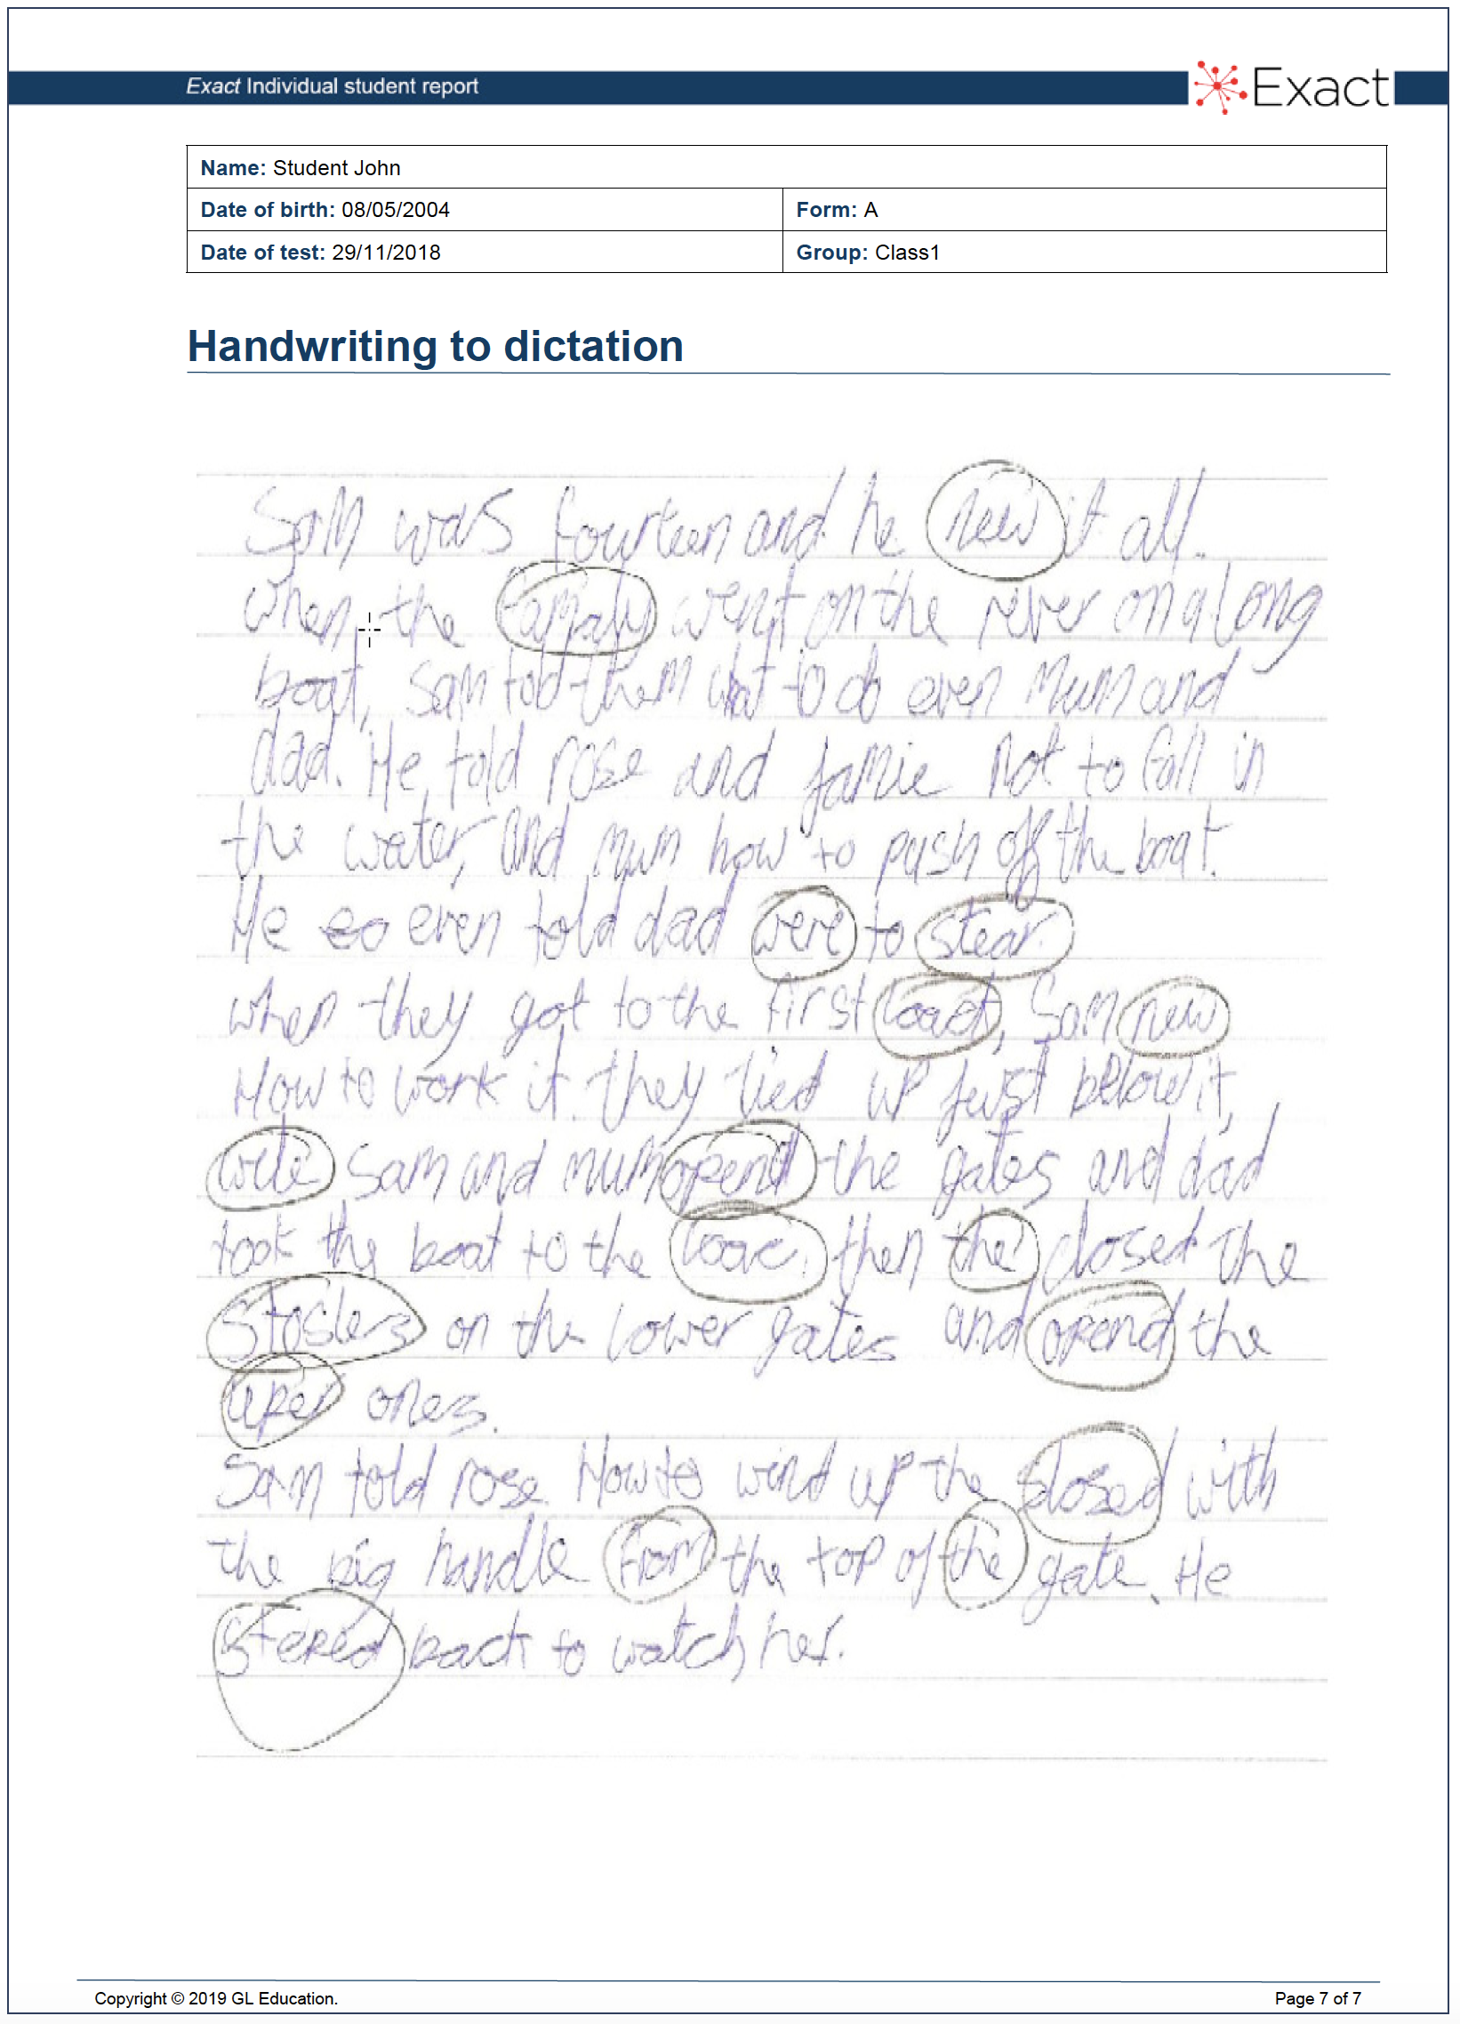 Exact Individual student report
Exact
Name: Student John
Date of birth: 08/05/2004 Form: A
Date of test: 29/11/2018 Group: Class1
Handwriting to dictation
Sam was fourteen and he new it all.
when the famaly went on the river on a long
boat, Sam told them wat to do even Mum and
dad. He told rose and jamie not to fall in
the water, and mum how to push off the boat.
He so even told dad were to stear.
when they got to the first loack, Sam new
How to work it. they tied up just below it,
wile Sam and mum opend the gates and dad
took the boat to the then the closed the
on the lower gates and opend the
uper ones.
Sam told rose How to wind up the closed with
the big handle from the top of the gate. He
stered back to watch her.
Copyright © 2019 GL Education. Page 7 of 7